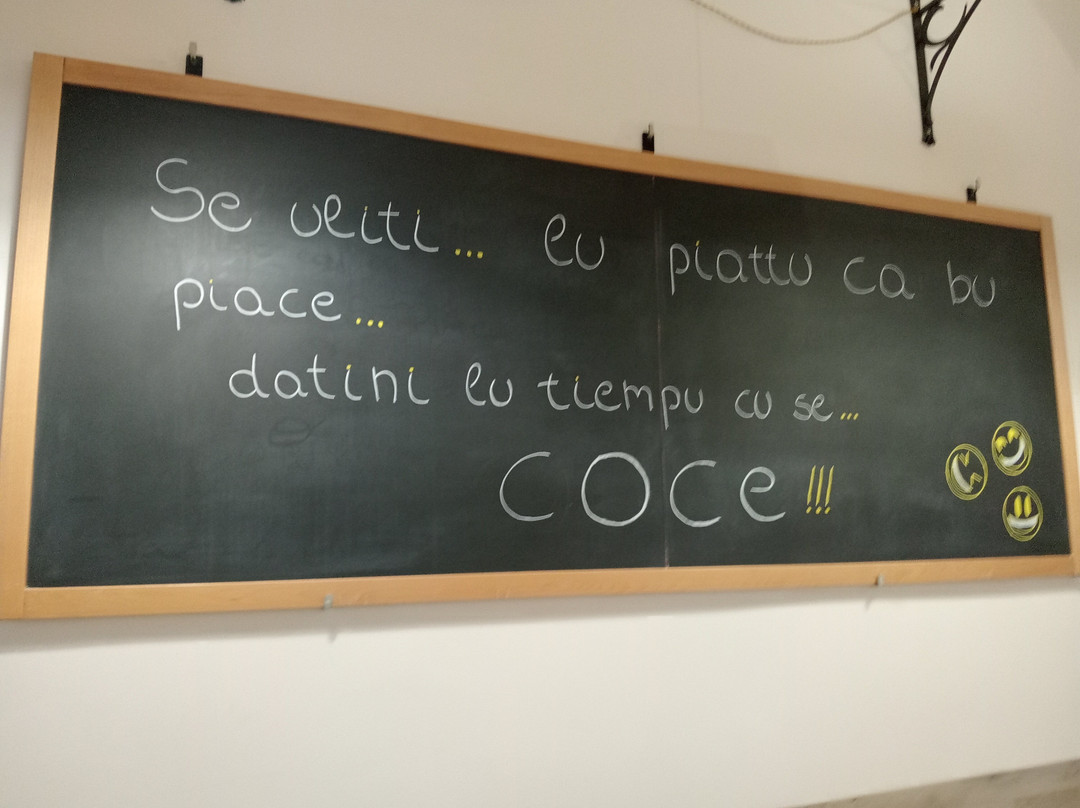 Se uliti... lu piattu ca bu
piace...
datini lu tiempu cu se...
COCE!!!